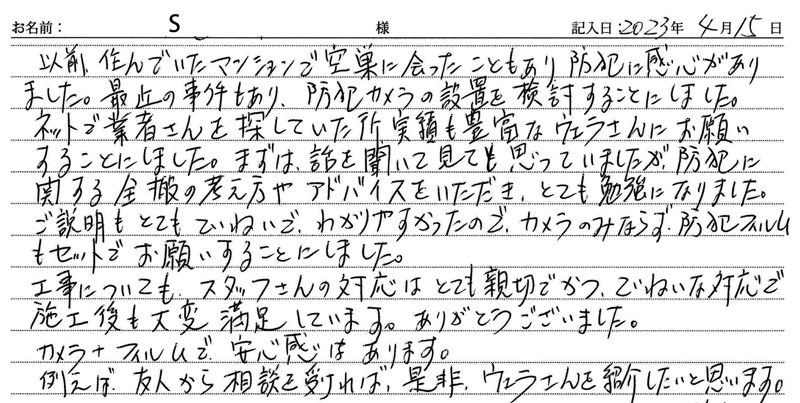 お名前： S 様 記入日：2023年 4月15日
以前、住んでいたマンションで空巣に会ったこともあり防犯に感心があり
ました。最近の事件もあり、防犯カメラの設置を検討することにしました。
ネットで業者さんを探していた所実績も豊富なウェラさんにお願い
することにしました。まずは、話を聞いて見ても思っていましたが、防犯に
関する全搬の考え方やアドバイスをいただき、とても勉強になりました。
ご説明もとてもていねいで、わかりやすかったので、カメラのみならず、防犯フィルム
もセットでお願いすることにしました。
工事についても、スタッフさんの対応はとても親切でかつ、ていねいな対応で
施工後も大変満足しています。ありがとうございました。
カメラ＋フィルムで、安心感はあります。
例えば、友人から相談を受ければ、是非、ウェラさんを紹介したいと思います。